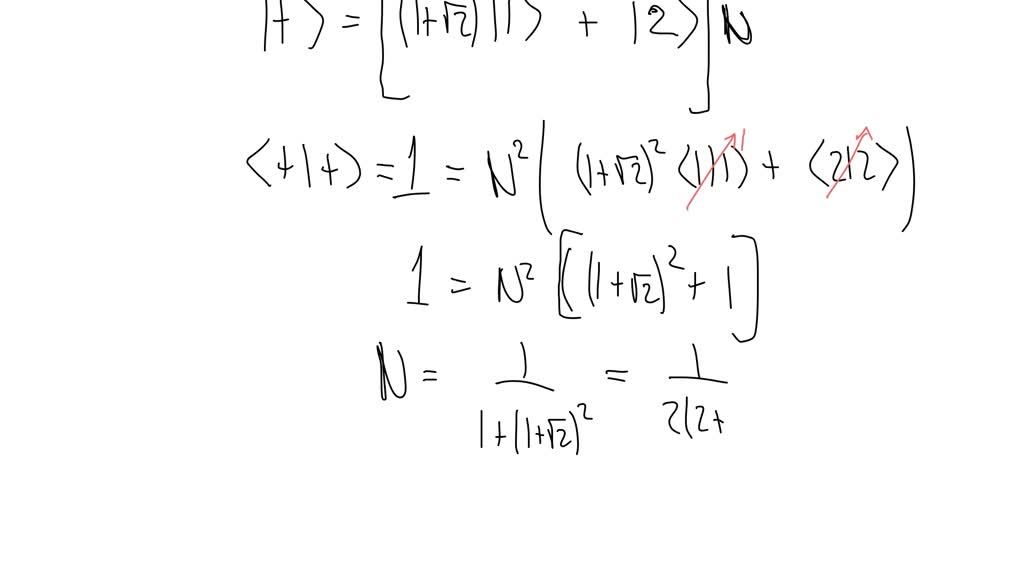 |+⟩ = [(1+√2)|1⟩ + |2⟩] N
⟨+|+⟩ = 1 = N² ( (1+√2)² ⟨1|1⟩ 1 + ⟨2|2⟩ )
1 = N² [ ( (1+√2)² + 1 ]
N = 1/(1+(1+√2)²) = 1/(2(2+